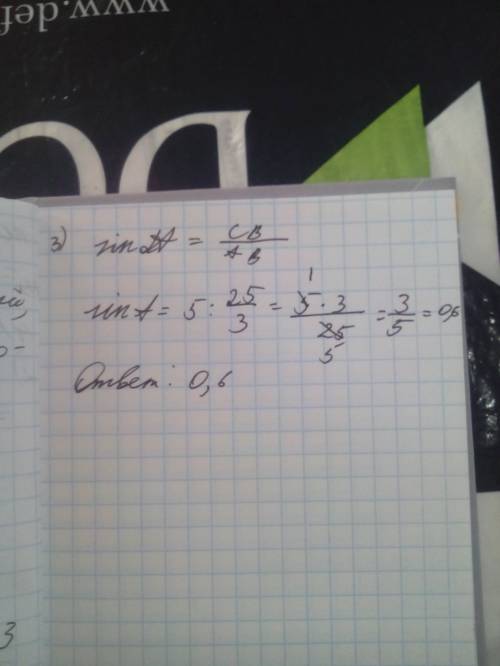 www.def
3) sin∠A = CB/AB
sin A = 5 : 25/3 = 5·3/25 = 3/5 = 0,6
1
5
Ответ: 0,6
3